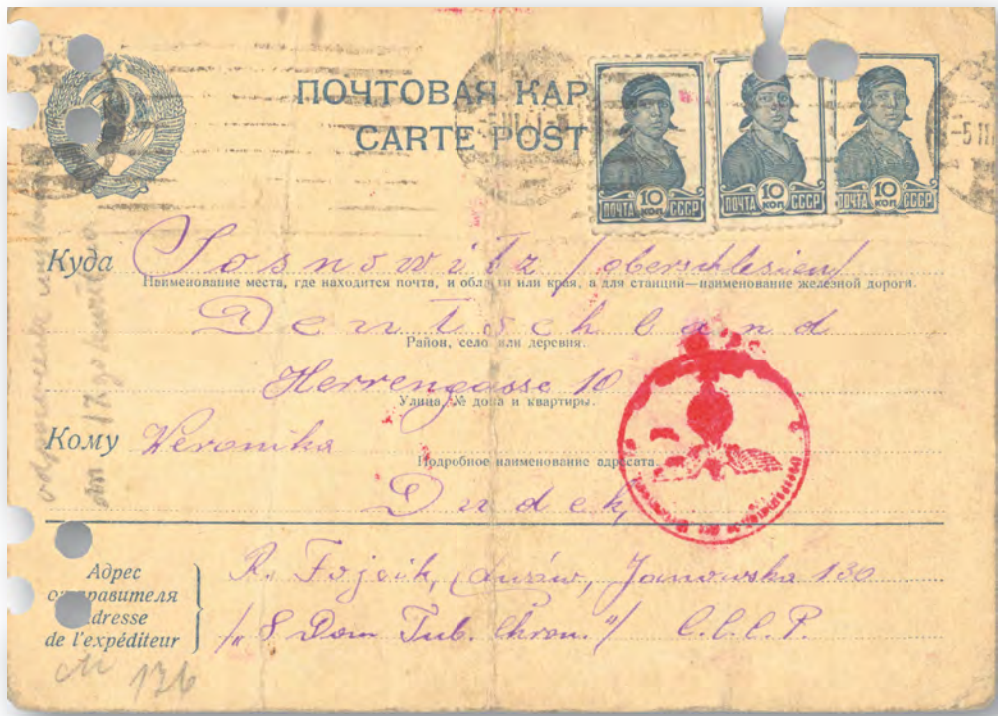 ПОЧТОВАЯ КАР
CARTE POST
10 КОП
ПОЧТА СССР
10 КОП
ПОЧТА СССР
10 КОП
ПОЧТА СССР
Куда Sosnowitz /oberschlesien/
Наименование места, где находится почта, и области или края, а для станций—наименование железной дороги.
Deutschland
Район, село или деревня.
Herrengasse 10
Улица, № дома и квартиры.
Кому Weronika
Подробное наименование адресата
Dudek,
Адрес
отправителя
adresse
de l'expéditeur
R. Fojcik, Lwów, Janowska 130
/„8 Dom Tub. Chron."/ C.C.C.P.
136